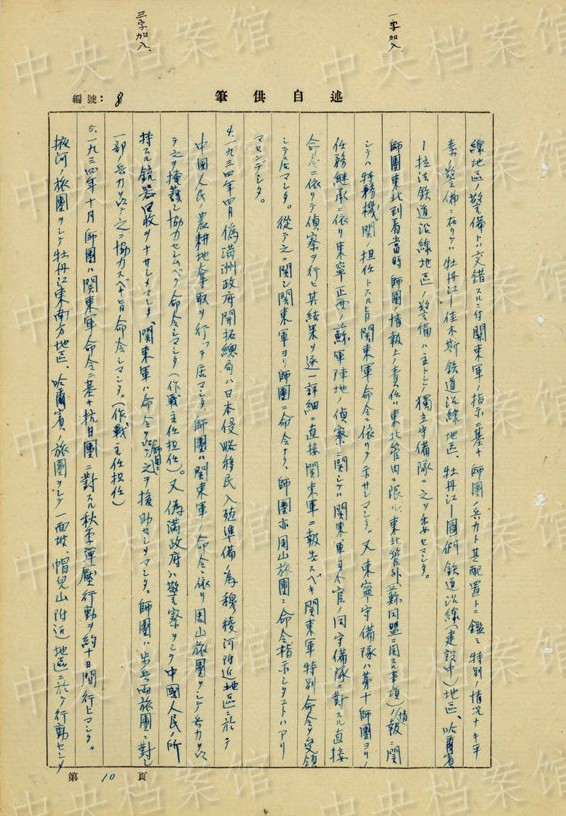 一字加入
三字加入、
編號：8
筆供自述
線地区ノ警備ト交錯スルニ付関東軍ノ指示ニ基キ師団ノ兵力ト其配置トニ鑑ミ特別ノ情況ナキ平
素ノ警備ニ在リテハ牡丹江ー佳木斯鉄道沿線地区、牡丹江ー図們鉄道沿線（建設中）地区、哈爾賓
ー拉法鉄道沿線地区ノ警備ハ主トシテ獨立守備隊ニ之ヲ委セマシタ。
師團東北到着当時師團情報上ノ責任ハ東北管内ニ限ラレ東北管外（蘇同盟ニ関スル事項）ノ情報ニ関
シテハ特務機関ノ担任トスル旨関東軍命令ニ依リテ示サレマシタ。又東寧守備隊ハ第十師団ヨリノ
任務継承ニ依リ東寧正面ノ蘇軍陣地ノ偵察ニ関シテハ関東軍司令官ノ同守備隊ニ對スル直接
命令ニ依リテ偵察ヲ行ヒ其結果ヲ逐一詳細ニ直接関東軍ニ報告スベキ関東軍特別命令ヲ受領
シテ居マシタ。從テ之ニ関シ関東軍ヨリ師團ニ命令ナク、師團亦周山旅團ニ命令指示シタコトハアリ
マセンデシタ。
4.一九三四年四月偽満洲政府開拓総局ハ日本侵略移民入殖準備ノ為穆稜河附近地区ニ於テ
中國人民ノ農耕地奪取ヲ行ッテ居マシタ。師團ハ関東軍ノ命令ニ依リ周山旅團ヲシテ兵力ヲ以
テ之ヲ掩護シ協力セシムベク命令シマシタ（作戦主任担任）。又偽満政府ハ警察ヲシテ中國人民ノ所
持スル銃器回收ヲナサシメマシタ。関東軍ハ命令ヲ以テ師團ニ之ヲ援助セシメマシタ。師團ハ歩兵両旅團ニ對シ
一部ノ兵力ヲ以テ之ニ協力スベキ旨命令シマシタ。（作戦主任担任）
5.一九三四年十月師團ハ関東軍命令ニ基キ抗日團ニ對スル秋季弾壓行動ヲ約十日間行ヒマシタ。
掖河ノ旅團ヲシテ牡丹江東南方地区、哈爾賓ノ旅團ヲシテ一面坡、帽兒山附近ノ地区ニ於テ行動セシメ
第10頁
中央档案馆